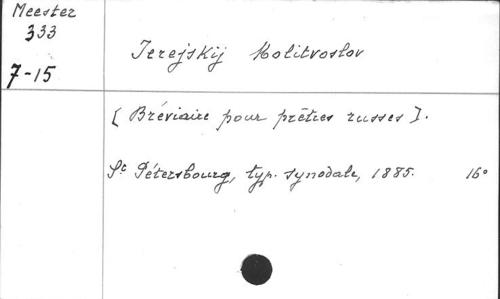 Meester
333
7-15
Ierejskij Molitvoslov
[Bréviaire pour prêtres russes].
St Pétersbourg, typ. synodale, 1885. 16°